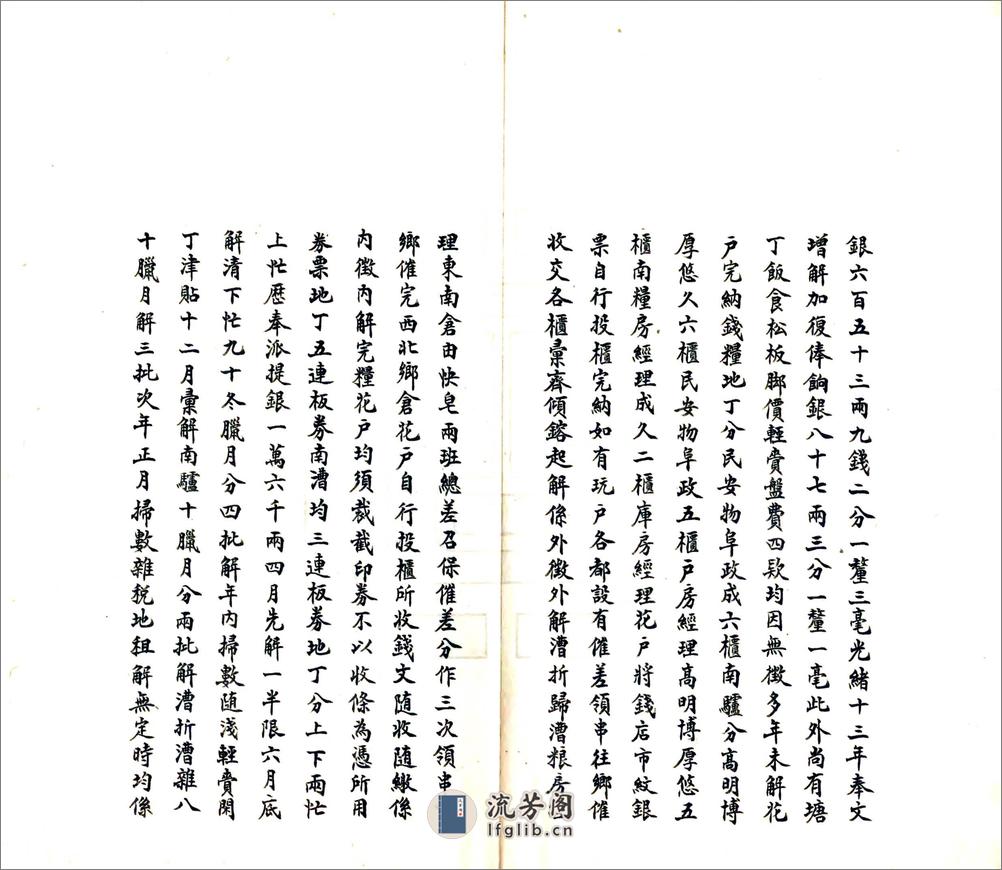 銀六百五十三兩九錢二分一釐三毫光緒十三年奉文
增解加復俸餉銀八十七兩三分一釐一毫此外尚有塘
丁飯食松板腳價輕賫盤費四款均因無徵多年未解花
戶完納錢糧地丁分民安物阜政成六櫃南驢分高明博
厚悠久六櫃民安物阜政五櫃戶房經理高明博厚悠五
櫃南糧房經理成久二櫃庫房經理花戶將錢店市紋銀
票自行投櫃完納如有玩戶各都設有催差領串往鄉催
收交各櫃彙齊傾鎔起解係外徵外解漕折歸漕粮房
理東南倉由快皂兩班總差召保催差分作三次領串
鄉催完西北鄉倉花戶自行投櫃所收錢文隨收隨繳係
內徵內解完糧花戶均須裁截印券不以收條為憑所用
券票地丁五連板券南漕均三連板券地丁分上下兩忙
上忙歷奉派提銀一萬六千兩四月先解一半限六月底
解清下忙九十冬臘月分四批解年內掃數隨淺輕賫閑
丁津貼十二月彙解南驢十臘月分兩批解漕折漕雜八
十臘月解三批次年正月掃數雜稅地租解無定時均係
流芳阁
lfglib.cn